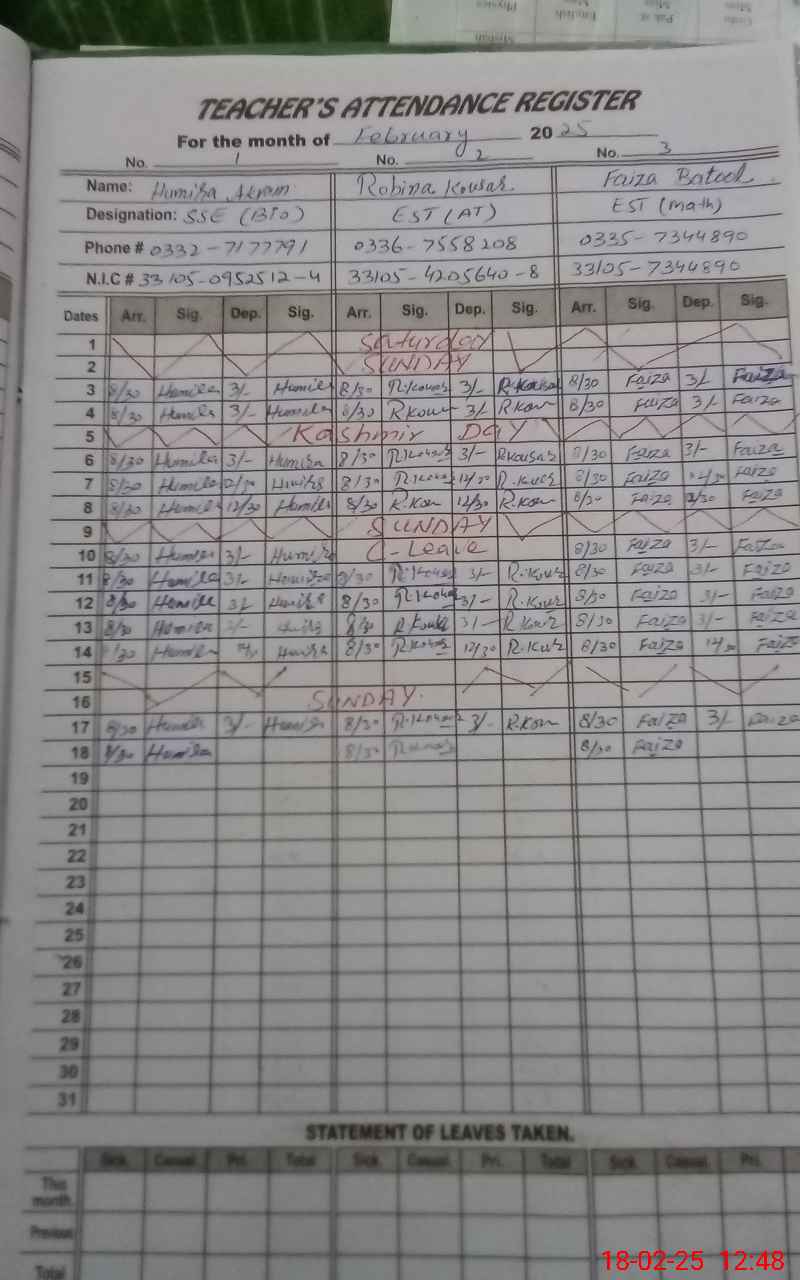 TEACHER'S ATTENDANCE REGISTER
For the month of February 2025
No. 1 No. 2 No. 3
Name: Humira Akram Robina Kousar Faiza Batool
Designation: SSE (BIO) EST (AT) EST (math)
Phone # 0332-7177791 0336-7558208 0335-7344890
N.I.C # 33105-0952512-4 33105-4205640-8 33105-7344890
Dates Arr. Sig. Dep. Sig. Arr. Sig. Dep. Sig. Arr. Sig. Dep. Sig.
1 Saturday
2 SUNDAY
3 8/30 Humira 3/- Humira 8/30 R.Kousar 3/- R.Kousar 8/30 Faiza 3/- Faiza
4 8/30 Humira 3/- Humira 8/30 R Kousar 3/- R Kousar 8/30 Faiza 3/- Faiza
5 Kashmir DAY
6 8/30 Humira 3/- Humira 8/30 R.Kousar 3/- RKousar 8/30 Faiza 3/- Faiza
7 8/30 Humira 12/30 Humira 8/30 R.Kousar 12/30 R.Kousar 8/30 Faiza 12/30 Faiza
8 8/30 Humira 12/30 Humira 8/30 R.Kousar 12/30 R.Kousar 8/30 Faiza 12/30 Faiza
9 SUNDAY
10 8/30 Humira 3/- Humira C-Leave 8/30 Faiza 3/- Faiza
11 8/30 Humira 3/- Humira 8/30 R.Kousar 3/- R.Kousar 8/30 Faiza 3/- Faiza
12 8/30 Humira 3/- Humira 8/30 R.Kousar 3/- R.Kousar 8/30 Faiza 3/- Faiza
13 8/30 Humira 3/- Humira 8/30 R Kousar 3/- R Kousar 8/30 Faiza 3/- Faiza
14 8/30 Humira Humira 8/30 R.Kousar 12/30 R.Kousar 8/30 Faiza 12/30 Faiza
15
16 SUNDAY.
17 8/30 Humira 3/- Humira 8/30 R.Kousar 3/- R.Kousar 8/30 Faiza 3/- Faiza
18 8/30 Humira 8/30 R.Kousar 8/30 Faiza
19
20
21
22
23
24
25
26
27
28
29
30
31
STATEMENT OF LEAVES TAKEN.
Sick. Casual. Pri. Total Sick. Casual. Pri. Total Sick. Casual. Pri.
This
month.
Previous
Total
18-02-25 12:48